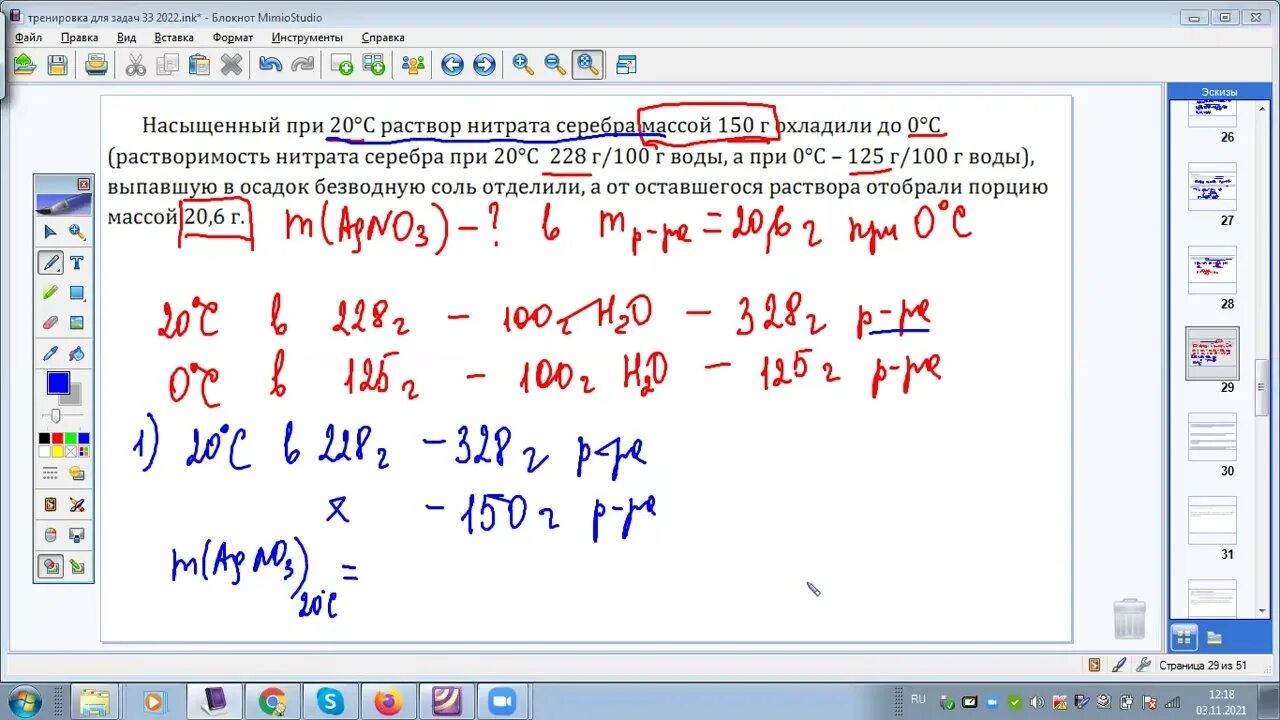 тренировка для задач 33 2022.ink* - Блокнот MimioStudio
Файл Правка Вид Вставка Формат Инструменты Справка
Эскизы
Насыщенный при 20°С раствор нитрата серебра массой 150 г охладили до 0°С
(растворимость нитрата серебра при 20°С 228 г/100 г воды, а при 0°С – 125 г/100 г воды),
выпавшую в осадок безводную соль отделили, а от оставшегося раствора отобрали порцию
массой 20,6 г.
m(AgNO3) – ? в m р-ра = 20,6 г при 0°С
20°С в 228 г – 100 г H2O – 328 г р-ра
0°С в 125 г – 100 г H2O – 125 г р-ра
1) 20°С в 228 г – 328 г р-ра
х – 150 г р-ра
m(AgNO3) 20°С =
26
27
28
29
30
31
Страница 29 из 51
RU
12:18
03.11.2021